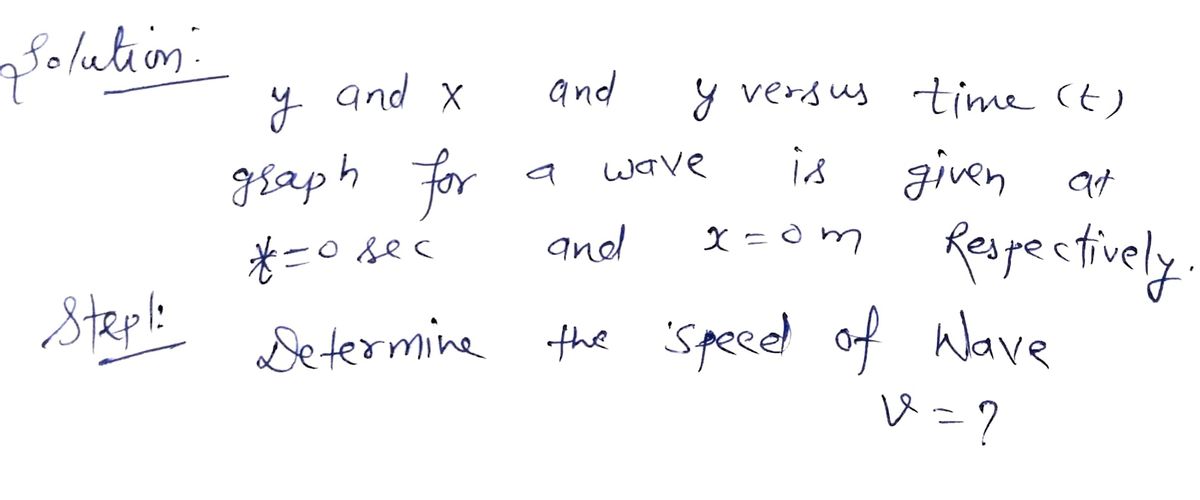 Solution:
y and x and y versus time (t)
graph for a wave is given at
t=0 sec and x=0 m Respectively.
Step1: Determine the speed of Wave
v=?